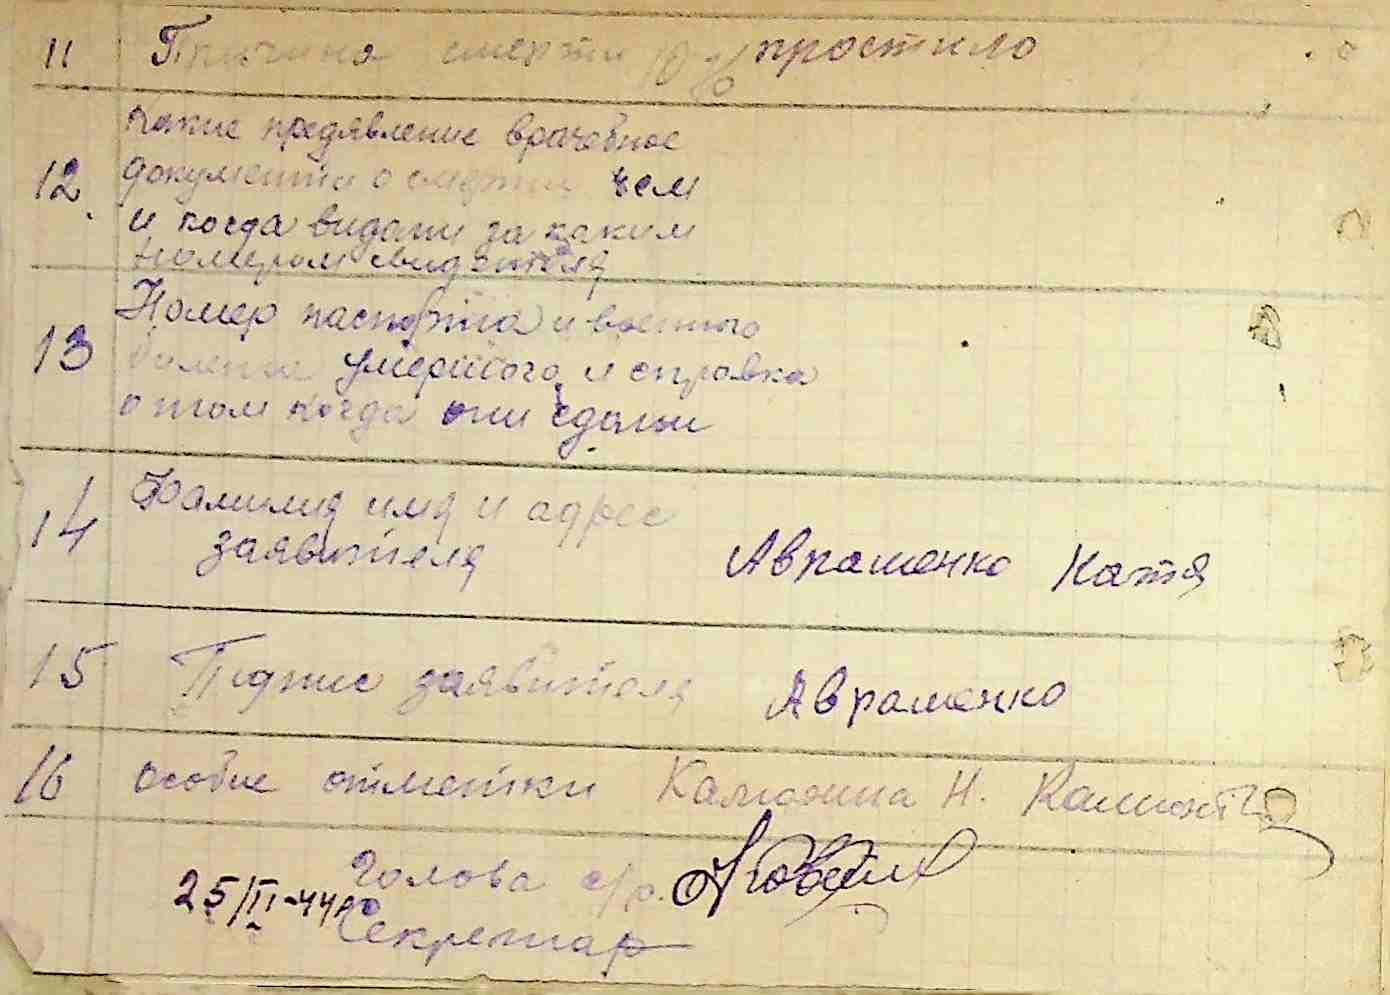 11 Причина смерти простило
Какие предявление врачебное
12. документи о смерти кем
и когда видани за каким
номером
Номер паспорта и военного
13 билета умершого и справка
о том когда они сдани
14 Фамилия имя и адрес
заявителя Авраменко Катя
15 Підпис заявителя Авраменко
16 особие отметки Н.
Голова с/р.
25/II-44
Секретар